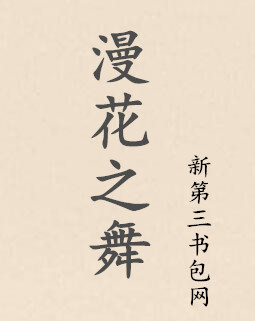 漫花之舞
新第三书包网